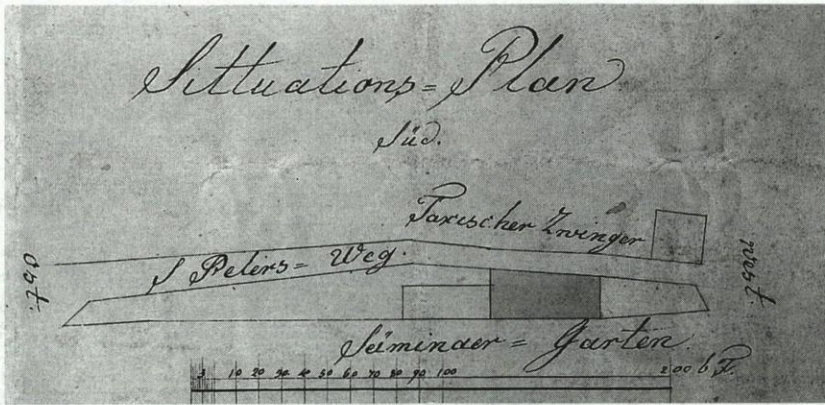 Sittuations= Plan
Süd.
Taxischer Zwinger
Ost.
S Peters= Weg.
West.
Säminaer= Garten.
5 10 20 30 40 50 60 70 80 90 100 200 b F.